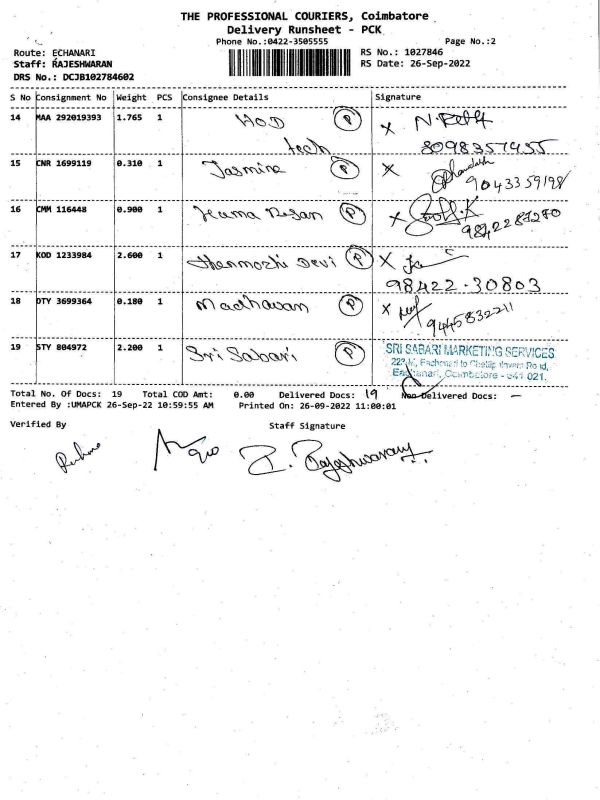 THE PROFESSIONAL COURIERS, Coimbatore
Delivery Runsheet - PCK
Phone No.:0422-3505555 Page No.:2
Route: ECHANARI RS No.: 1027846
Staff: RAJESHWARAN RS Date: 26-Sep-2022
DRS No.: DCJB102784602
S No Consignment No Weight PCS Consignee Details Signature
14 MAA 292019393 1.765 1 HOD P X
tech 8098357455
15 CNR 1699119 0.310 1 Jasmine P X
9043359198
16 CMM 116448 0.900 1 P X
9842287270
17 KOD 1233984 2.600 1 Shenmozhi Devi P X
98422-30803
18 DTY 3699364 0.180 1 Madhavan P X
9445832211
19 STY 804972 2.200 1 Sri Sabari P SRI SABARI MARKETING SERVICES
Eachanari, Coimbatore - 641 021.
Total No. Of Docs: 19 Total COD Amt: 0.00 Delivered Docs: 19 Non Delivered Docs: -
Entered By :UMAPCK 26-Sep-22 10:59:55 AM Printed On: 26-09-2022 11:00:01
Verified By Staff Signature
R. Rajeshwaran